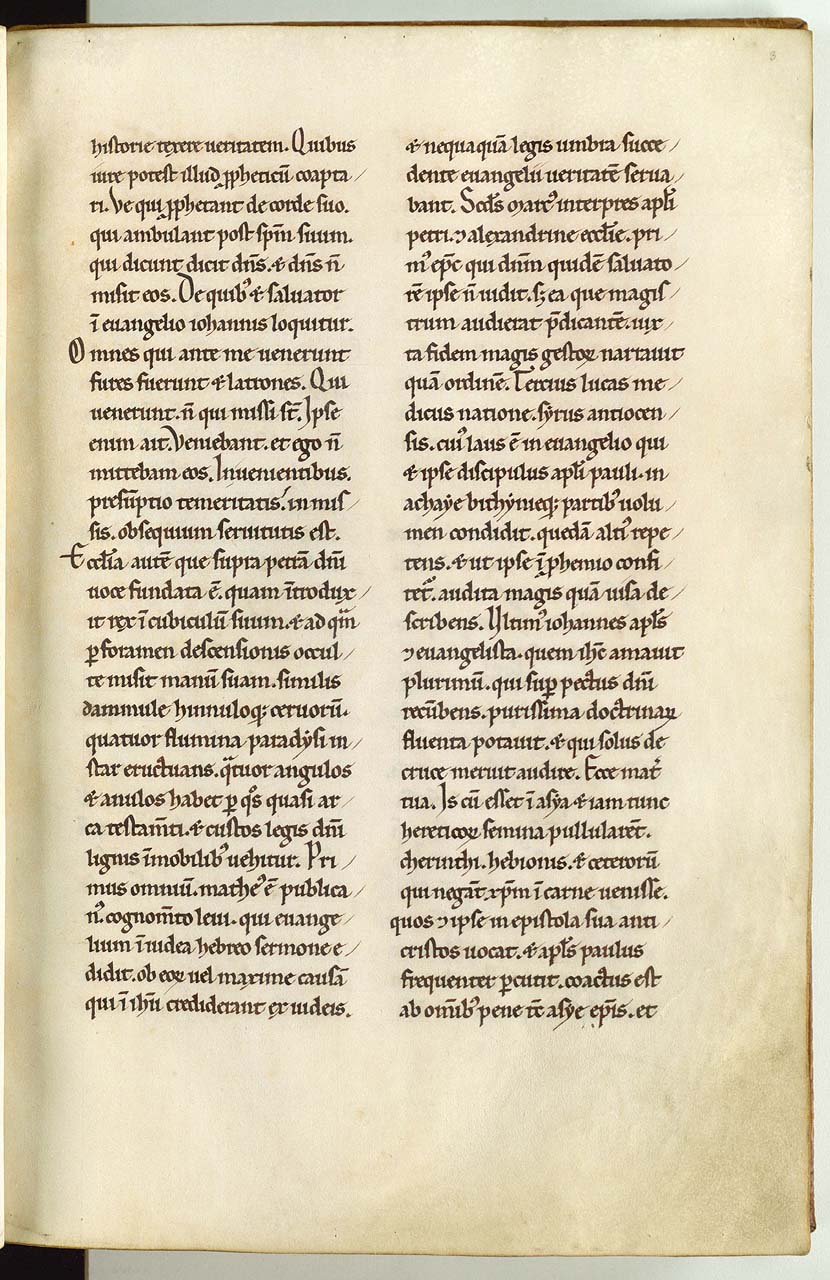 3
historie texere ueritatem. Quibus
iure potest illud ꝓpheticū coapta
ri. Ve qui ꝓphetant de corde suo.
qui ambulant post sp̄m suum.
qui dicunt dicit dn̄s. & dn̄s n̄
misit eos. De quib᷒ & saluator
ī euangelio iohannis loquitur.
Omnes qui ante me uenerunt
fures fuerunt & latrones. Qui
uenerunt. n̄ qui missi st̄. Ipse
enim ait. Veniebant. et ego n̄
mittebam eos. In uenientibus.
presūptio temeritatis. in mis
sis. obsequium seruitutis est.
Eccl̄ia autē que supra petrā dn̄i
uoce fundata ē. quam ītrodux
it rex ī cubiculū suum. & ad quā
ꝑ foramen descensionis occul
te misit manū suam. similis
dammule hinnuloq; ceruorū.
quatuor flumina paradẏsi in
star eructuans. qͣtuor angulos
& anulos habet ꝑ qͦs quasi ar
ca testam̄ti. & custos legis dn̄i
lignis īmobilib᷒ uehitur. Pri
mus omniū. mathe᷒ ē publica
n᷒. cognom̄to leui. qui euange
lium ī iudea hebreo sermone e
didit. ob eoꝝ uel maxime causā
qui ī ihm̄ crediderant ex iudeis.
& nequaquā legis umbra succe
dente euangelii ueritatē serua
bant. Scd̄s marc᷒ interpres apl̄i
petri. ⁊ alexandrine eccl̄ie. pri
m᷒ ep̄c qui dn̄m quidē saluato
rē ipse n̄ uidit. sꝫ ea que magis
trum audierat p̄dicantē. iux
ta fidem magis gestoꝝ narrauit
quā ordinē. Tercius lucas me
dicus natione. sẏrus antiocen
sis. cui᷒ laus ē in euangelio qui
& ipse discipulus apl̄i pauli. in
achaẏe bithẏnieq; partib᷒ uolu
men condidit. quedā alti᷒ repe
tens. & ut ipse ī ꝓhemio confi
tet᷑. audita magis quā uisa de
scribens. Ultim᷒ iohannes apl̄s
⁊ euangelista. quem ihc̄ amauit
plurimū. qui sup̱ pectus dn̄i
recūbens. purissima doctrinaꝝ
fluenta potauit. & qui solus de
cruce meruit audire. Ecce mat᷑
tua. Is cū esset ī asẏa & iam tunc
hereticoꝝ semina pullularēt.
cherinthi. hebionis. & ceterorū
qui negāt xp̄m ī carne uenisse.
quos ⁊ ipse in epistola sua anti
cristos uocat. & apl̄s paulus
frequenter ꝑcutit. coactus est
ab om̄ib᷒ pene tc̄ asẏe ep̄is. et